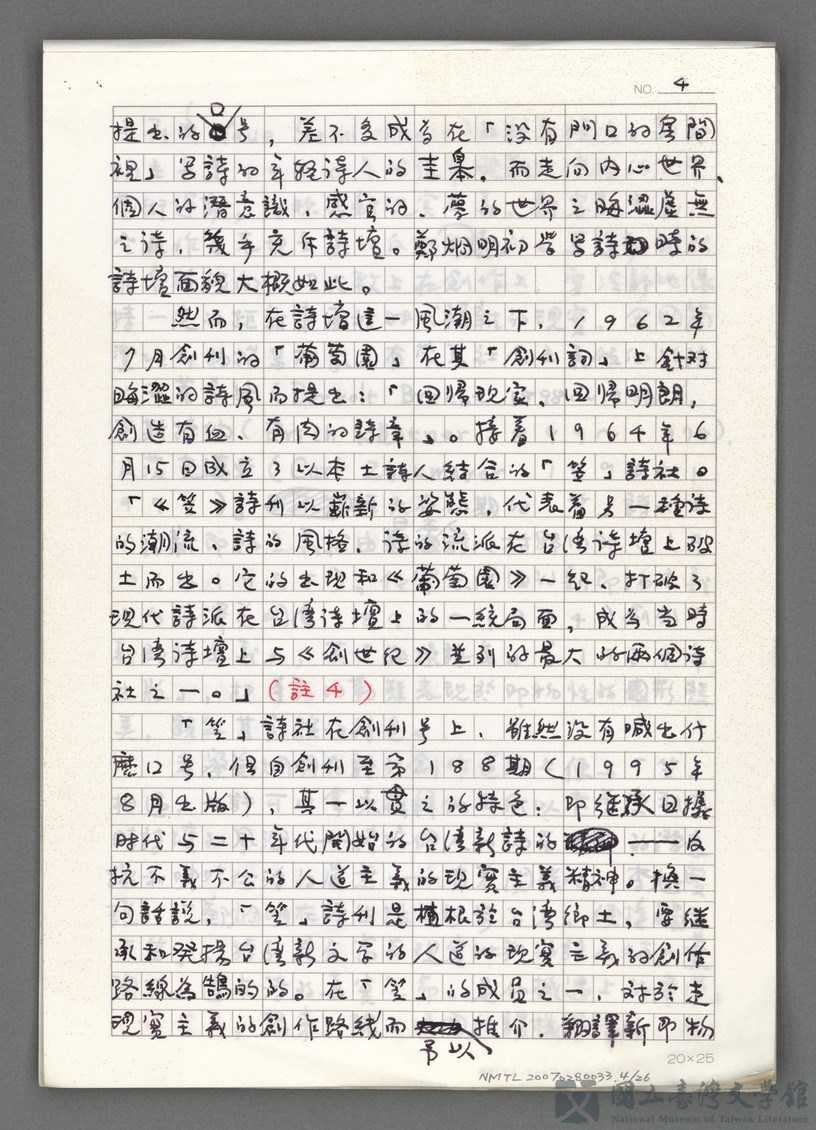 NO. 4
提出的口号，差不多成為在「沒有門口的房間
裡」写詩的年轻詩人的圭臬，而走向內心世界、
個人的潛意識、感官的、夢的世界之晦澀虛無
之詩，幾乎充斥詩壇。鄭炯明初学写詩時的
詩壇面貌大概如此。
然而，在詩壇這一風潮之下，1962年
7月創刊的「葡萄園」在其「創刊詞」上針对
晦澀的詩风而提出：「回歸现实、回歸明朗，
創造有血、有肉的詩章」。接着1964年6
月15日成立了以本土詩人結合的「笠」詩社。
「《笠》詩刊以嶄新的姿態，代表着另一種诗
的潮流、詩的風格、诗的流派在台湾诗壇上破
土而出。它的出现和《葡萄園》一起，打破了
现代詩派在台湾诗壇上的一統局面，成為当時
台湾诗壇上与《創世纪》並列的最大的兩個诗
社之一。」（註4）
「笠」詩社在創刊号上，雖然沒有喊出什
麼口号，但自創刊至第188期（1995年
8月出版），其一以貫之的特色：即继承日據
时代与二十年代開始的台湾新詩的——反
抗不義不公的人道主義的现实主義精神。換一
句話說，「笠」詩刊是植根於台湾鄉土，要继
承和發揚台湾新文学的人道的现实主義的創作
路線為鵠的的。在「笠」的成員之一，对於走
现实主義的創作路线而予以推介、翻譯新即物
20×25
NMTL 20070280033.4/26
國立臺灣文學館
National Museum of Taiwan Literature